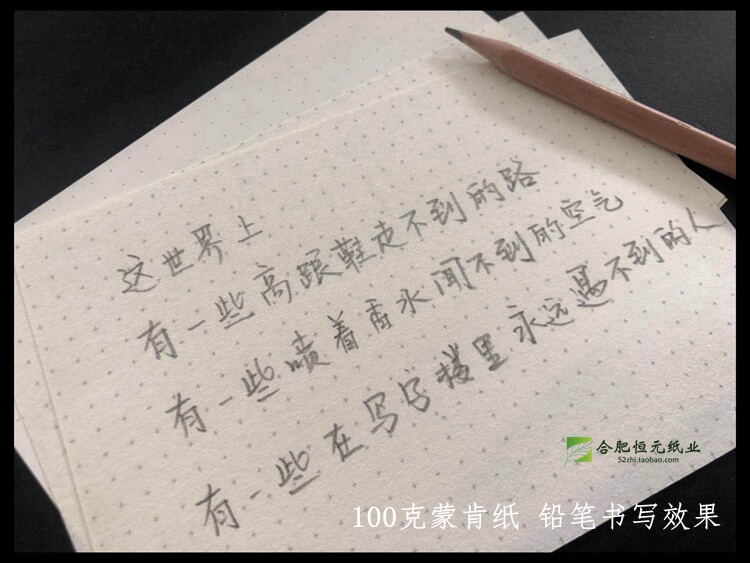 这世界上
有一些高跟鞋走不到的路
有一些喷着香水闻不到的空气
有一些在写字楼里永远遇不到的人
合肥恒元纸业
52zhi.taobao.com
100克蒙肯纸 铅笔书写效果